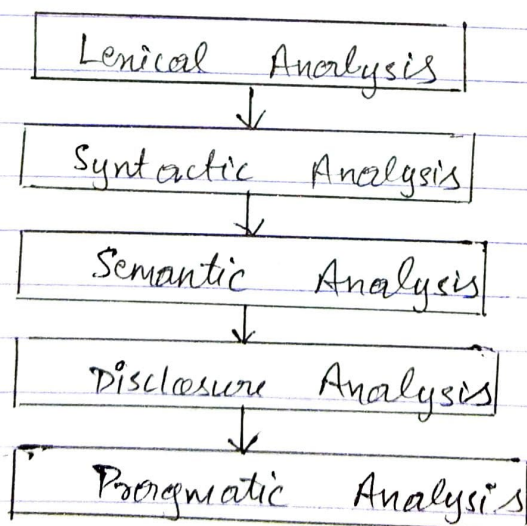 Lexical Analysis
Syntactic Analysis
Semantic Analysis
Disclosure Analysis
Pragmatic Analysis